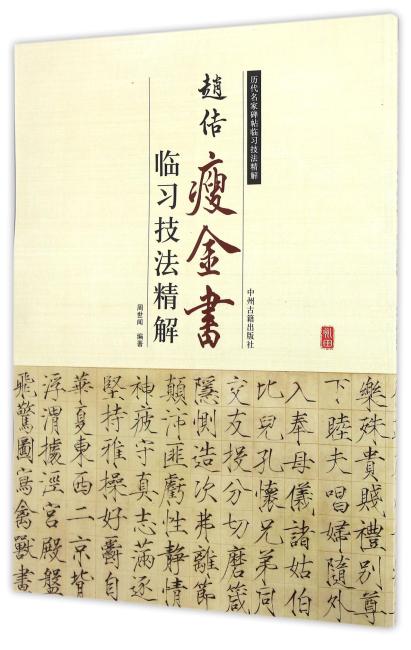 历代名家碑帖临习技法精解
趙佶
瘦金書
临习技法精解
周世闻 编著
中州古籍出版社
樂殊貴賤禮別尊
下睦夫唱婦隨外
入奉母儀諸姑伯
比兒孔懷兄弟同
交友投分切磨箴
隱惻造次弗離節
顛沛匪虧性静情
神疲守真志滿逐
堅持雅操好爵自
華夏東西二京背
浮渭據涇宮殿盤
飛驚圖寫禽獸畫